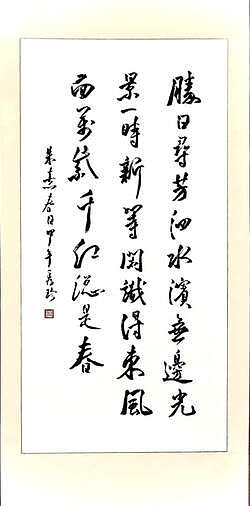 勝日尋芳泗水濱無邊光
景一時新等閑識得東風
面萬紫千紅總是春
朱熹春日甲午